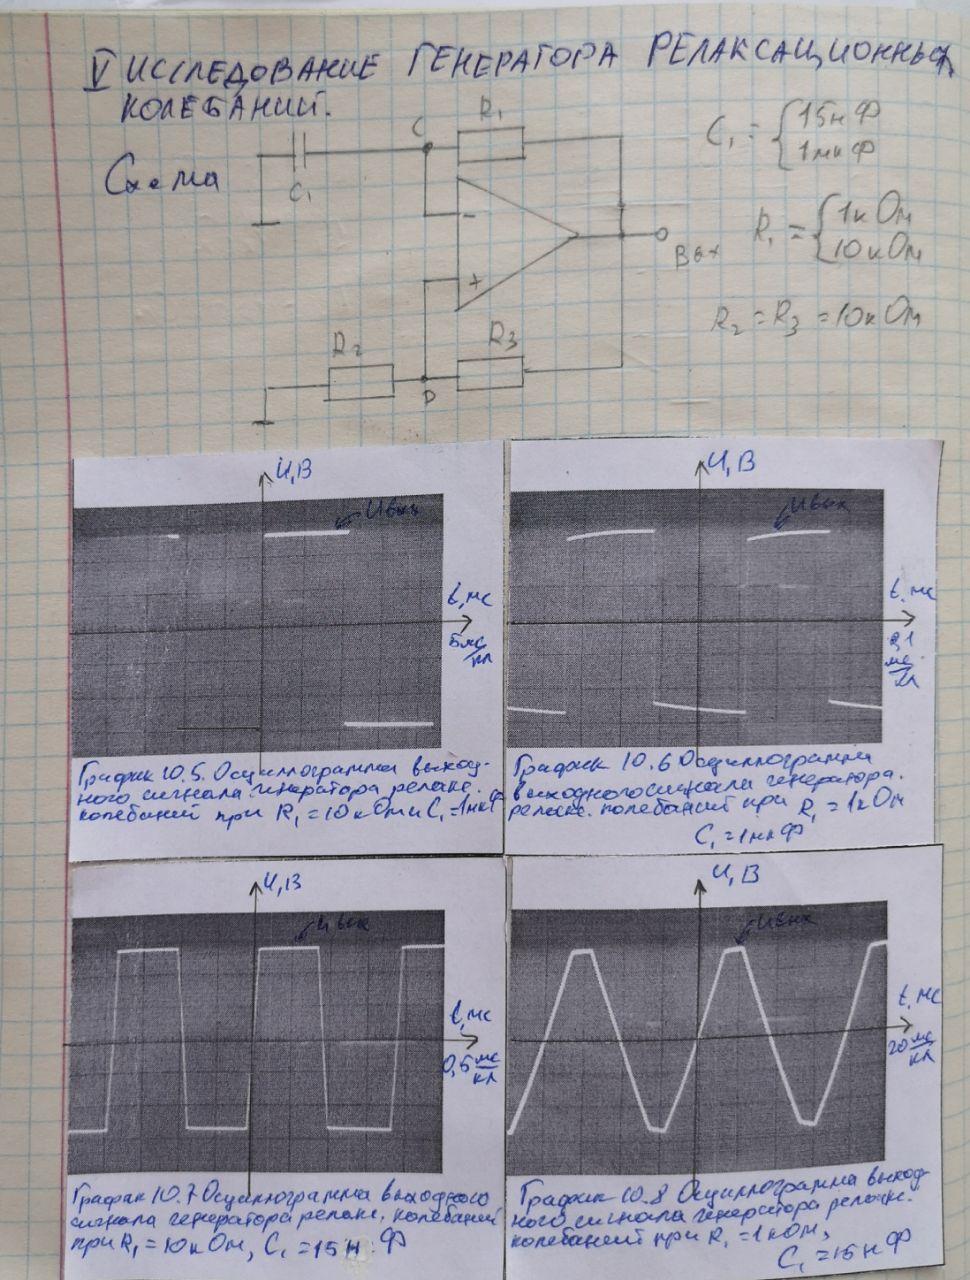 V ИССЛЕДОВАНИЕ ГЕНЕРАТОРА РЕЛАКСАЦИОННЫХ
КОЛЕБАНИЙ.
Схема
C1
C
R1
-
+
Вых
R2
D
R3
C1 = { 15нФ
1мкФ
R1 = { 1кОм
10кОм
R2 = R3 = 10кОм
U,В
Uвых
t,мс
5 мс/кл
График 10.5. Осциллограмма выход-
ного сигнала генератора релакс.
колебаний при R1 = 10кОм и C1 = 1мкФ
U,В
Uвых
t,мс
мс/кл
График 10.6 Осциллограмма
выходного сигнала генератора
релакс. колебаний при R1 = 1кОм
C1 = 1мкФ
U,В
Uвых
t,мс
0,5 мс/кл
График 10.7 Осциллограмма выходного
сигнала генератора релакс. колебаний
при R1 = 10кОм, C1 = 15нФ
U,В
Uвых
t,мс
20 мс/кл
График 10.8 Осциллограмма выход-
ного сигнала генератора релакс.
колебаний при R1 = 1кОм,
C1 = 15нФ